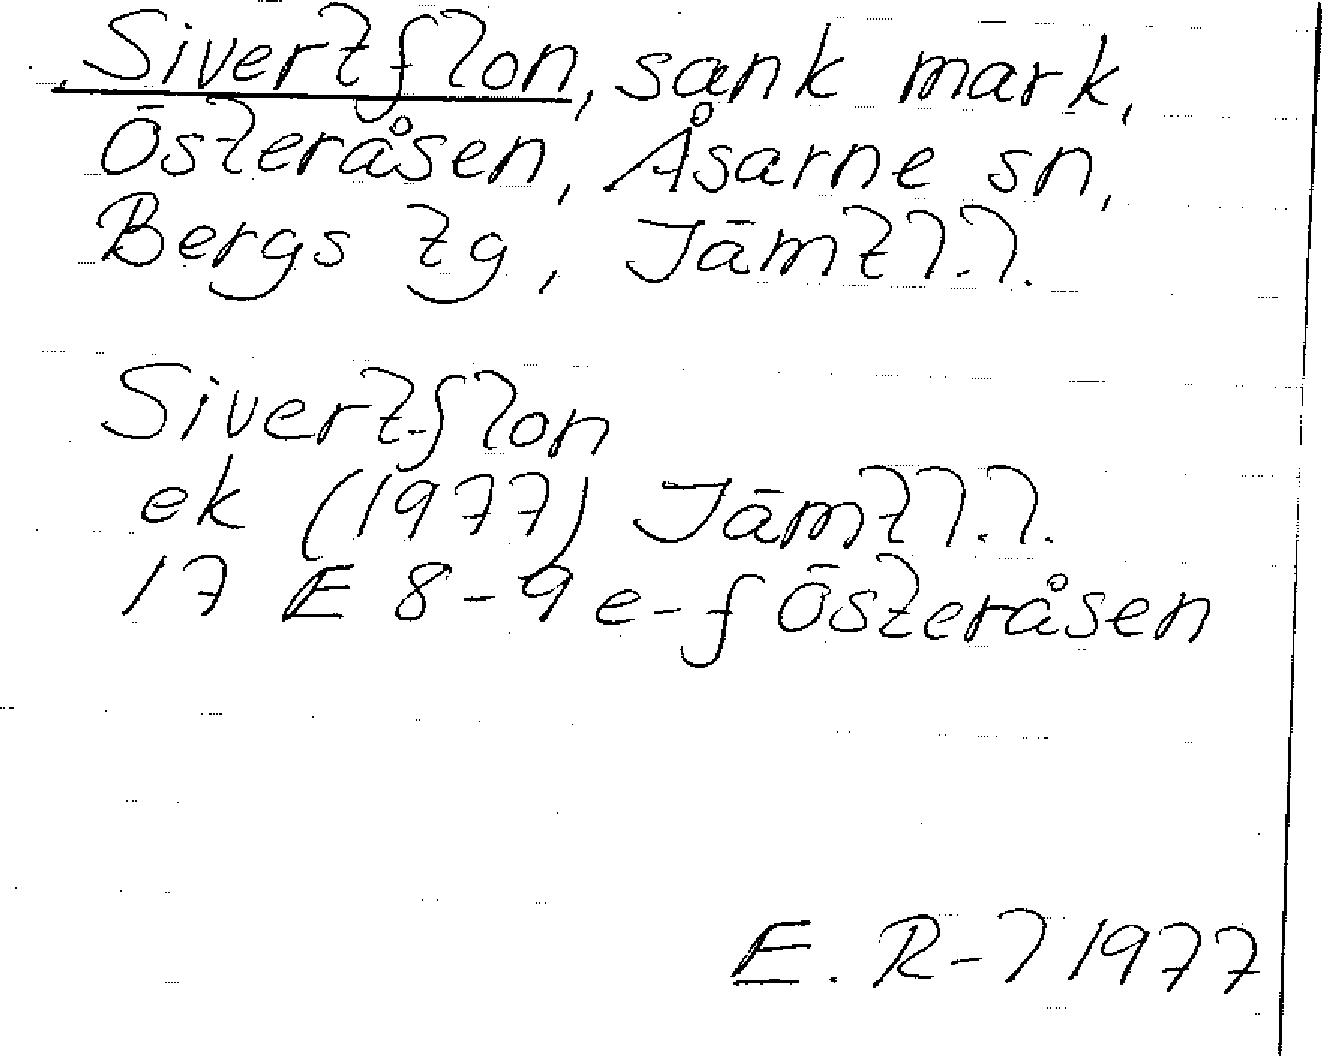 Sivertflon, sank mark,
Österåsen, Åsarne sn,
Bergs tg, Jämtl.l.
Sivertflon
ek (1977) Jämtl.l.
17 E 8-9 e-f Österåsen
E. R-l 1977